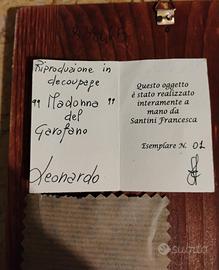 Riproduzione in
decoupage
"Madonna"
del
Garofano
Leonardo
Questo oggetto
è stato realizzato
interamente a
mano da
Santini Francesca
Esemplare N. 01
subito